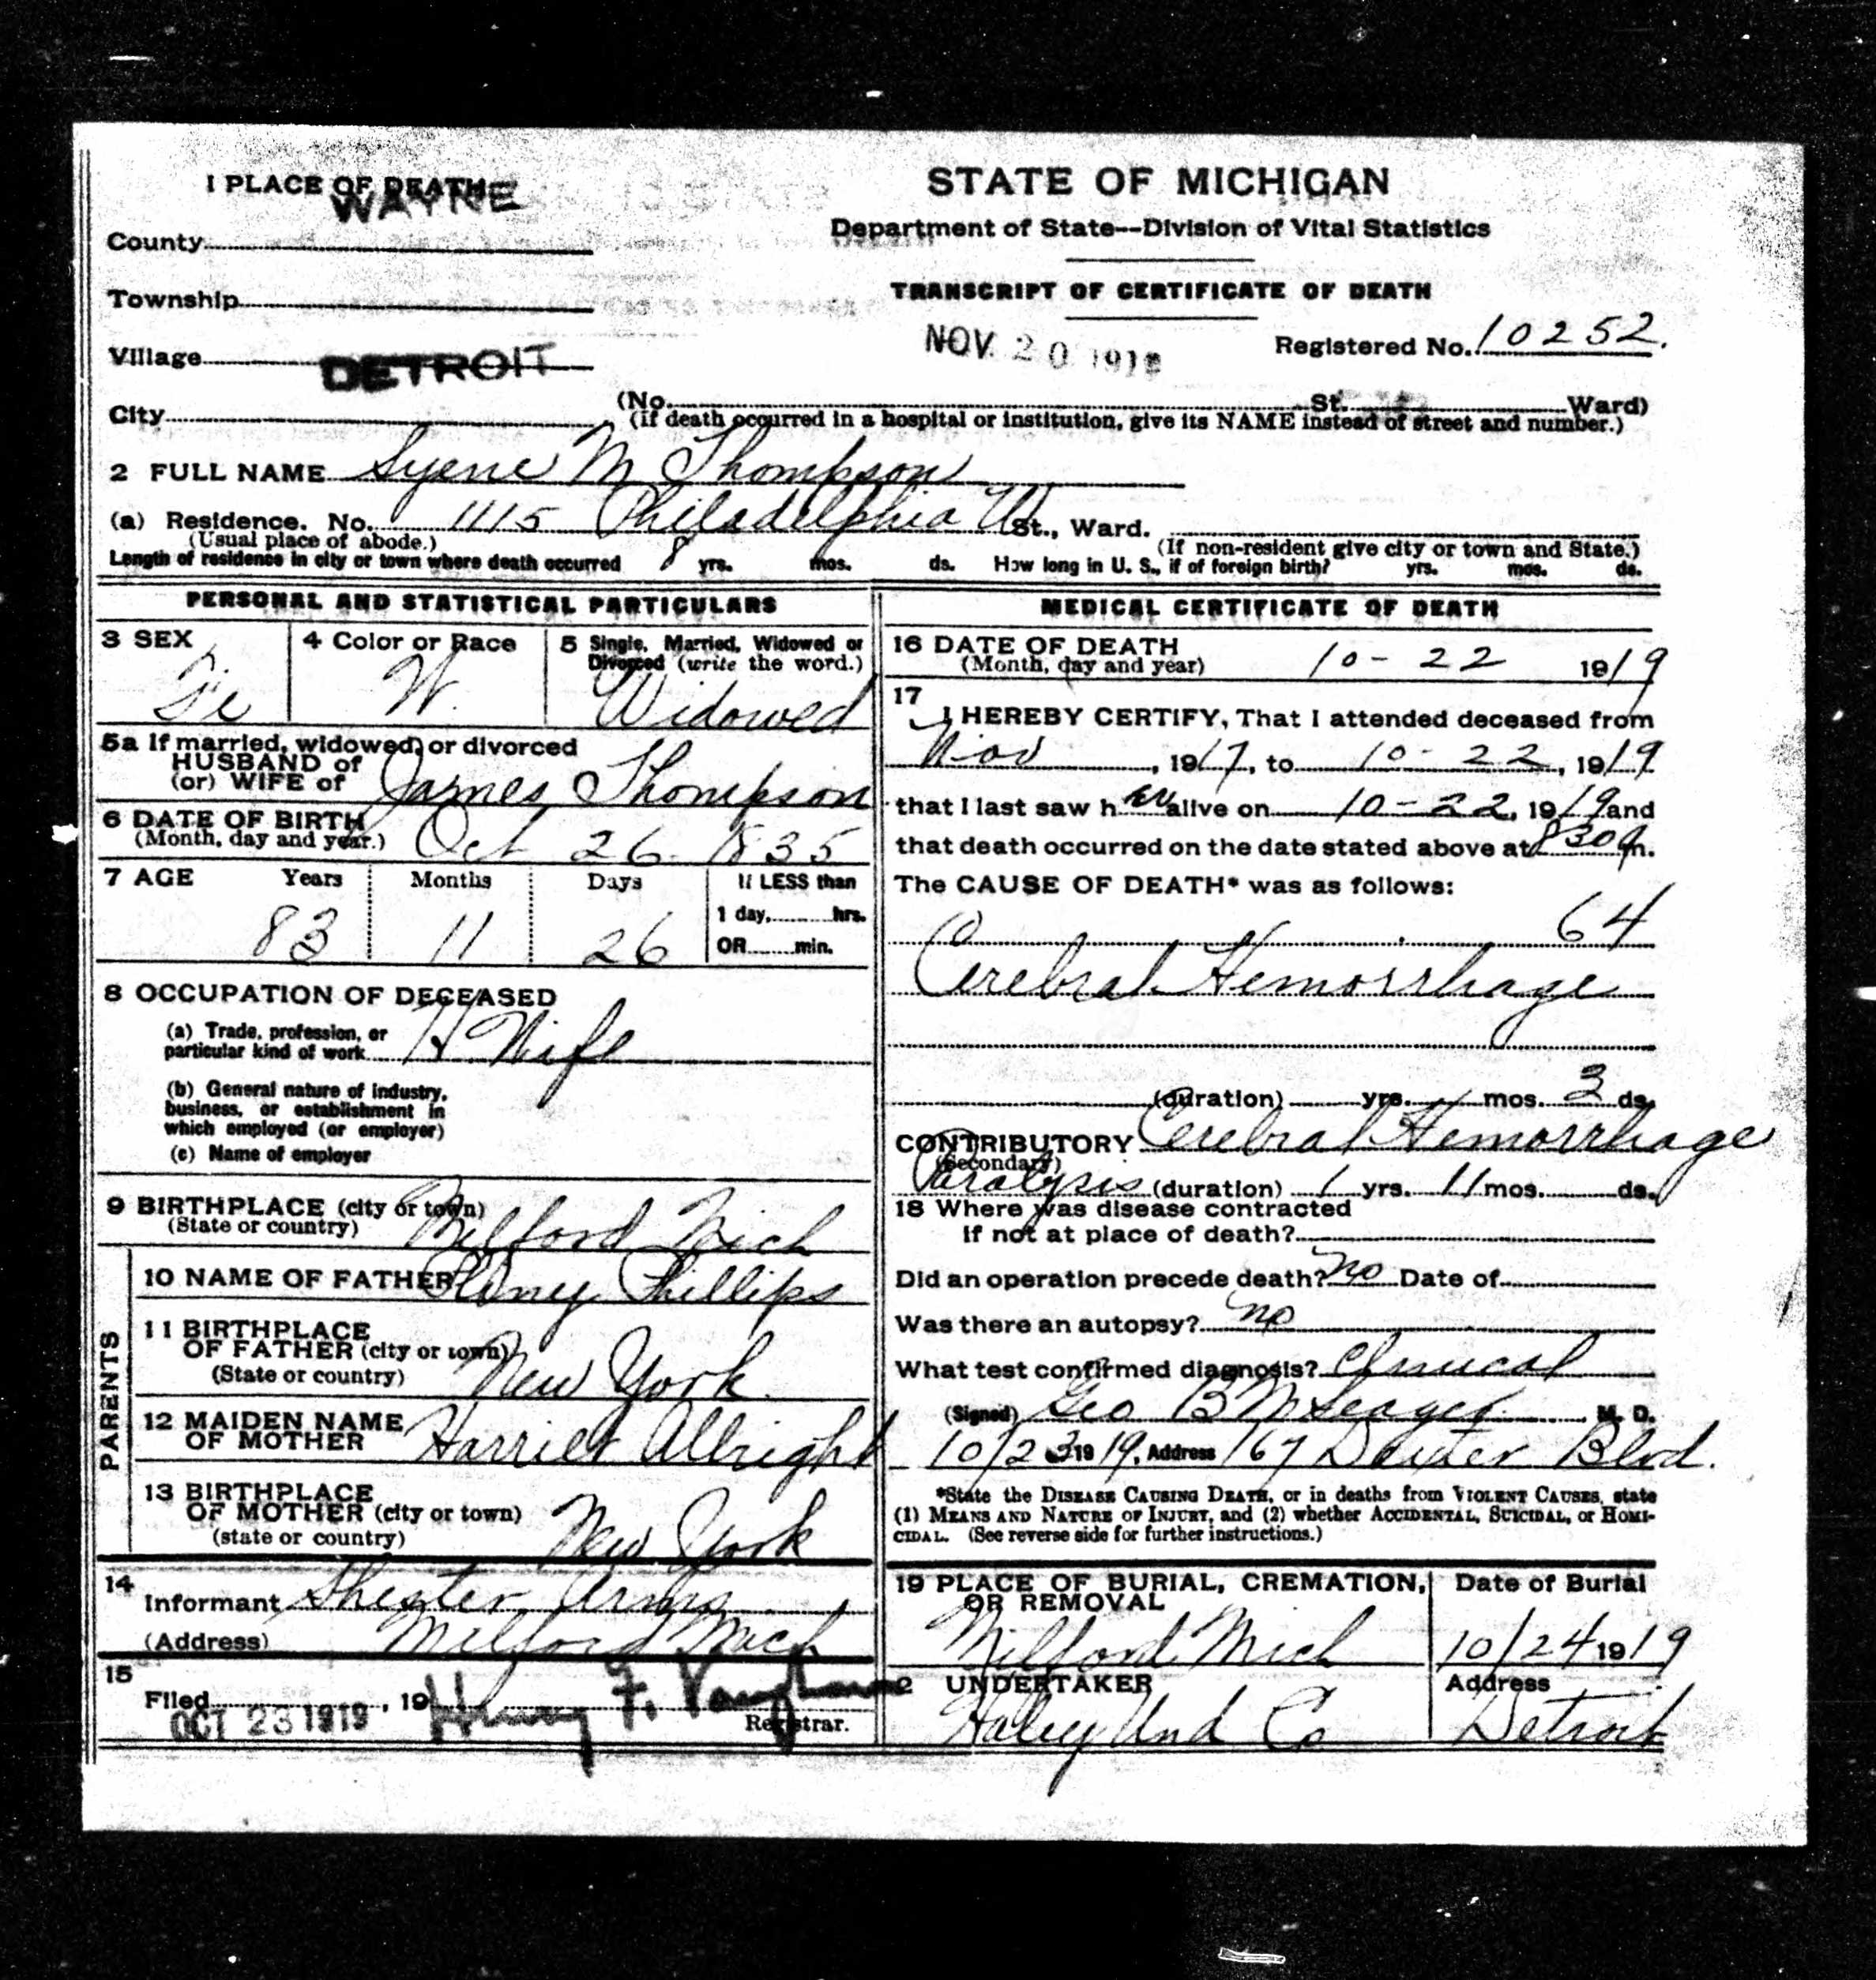 1 PLACE OF DEATH
WAYNE
County
Township
Village
DETROIT
City
STATE OF MICHIGAN
Department of State--Division of Vital Statistics
TRANSCRIPT OF CERTIFICATE OF DEATH
NOV. 20 191
Registered No. 10252.
(No. St. Ward)
(If death occurred in a hospital or institution, give its NAME instead of street and number.)
2 FULL NAME Syene M Thompson
(a) Residence. No. 1115 Philadelphia W St., Ward.
(Usual place of abode.) (If non-resident give city or town and State.)
Length of residence in city or town where death occurred 8 yrs. mos. ds. How long in U. S., if of foreign birth? yrs. mos. ds.
PERSONAL AND STATISTICAL PARTICULARS
3 SEX
Fe
4 Color or Race
W.
5 Single, Married, Widowed or
Divorced (write the word.)
Widowed
5a If married, widowed, or divorced
HUSBAND of
(or) WIFE of James Thompson
6 DATE OF BIRTH
(Month, day and year.) Oct 26 1835
7 AGE Years Months Days If LESS than
1 day, hrs.
83 11 26 OR min.
8 OCCUPATION OF DECEASED
(a) Trade, profession, or
particular kind of work H. Wife
(b) General nature of industry,
business, or establishment in
which employed (or employer)
(c) Name of employer
9 BIRTHPLACE (city or town)
(State or country) Milford Mich
PARENTS
10 NAME OF FATHER Phillips
11 BIRTHPLACE
OF FATHER (city or town)
(State or country) New York.
12 MAIDEN NAME
OF MOTHER Harriet Albright
13 BIRTHPLACE
OF MOTHER (city or town)
(state or country) New York
14
Informant Arms
(Address) Milford Mich
15
Filed , 19
OCT 23 1919 Henry F. Vaughan
Registrar.
MEDICAL CERTIFICATE OF DEATH
16 DATE OF DEATH
(Month, day and year) 10-22 1919
17
I HEREBY CERTIFY, That I attended deceased from
Nov , 1917, to 10-22, 1919
that I last saw her alive on 10-22, 1919 and
that death occurred on the date stated above at 830 m.
The CAUSE OF DEATH* was as follows:
64
Cerebral Hemorrhage
(duration) yrs. mos. 3 ds.
CONTRIBUTORY Cerebral Hemorrhage
(Secondary)
Paralysis (duration) 1 yrs. 11 mos. ds.
18 Where was disease contracted
If not at place of death?
Did an operation precede death? no Date of
Was there an autopsy? no
What test confirmed diagnosis? Clinical
(Signed) Geo B M Seager M. D.
10/23 1919, Address 167 Dexter Blvd.
*State the DISEASE CAUSING DEATH, or in deaths from VIOLENT CAUSES, state
(1) MEANS AND NATURE OF INJURY, and (2) whether ACCIDENTAL, SUICIDAL, or HOMI-
CIDAL. (See reverse side for further instructions.)
19 PLACE OF BURIAL, CREMATION,
OR REMOVAL
Milford Mich
Date of Burial
10/24 1919
2 UNDERTAKER
Haley Und Co
Address
Detroit